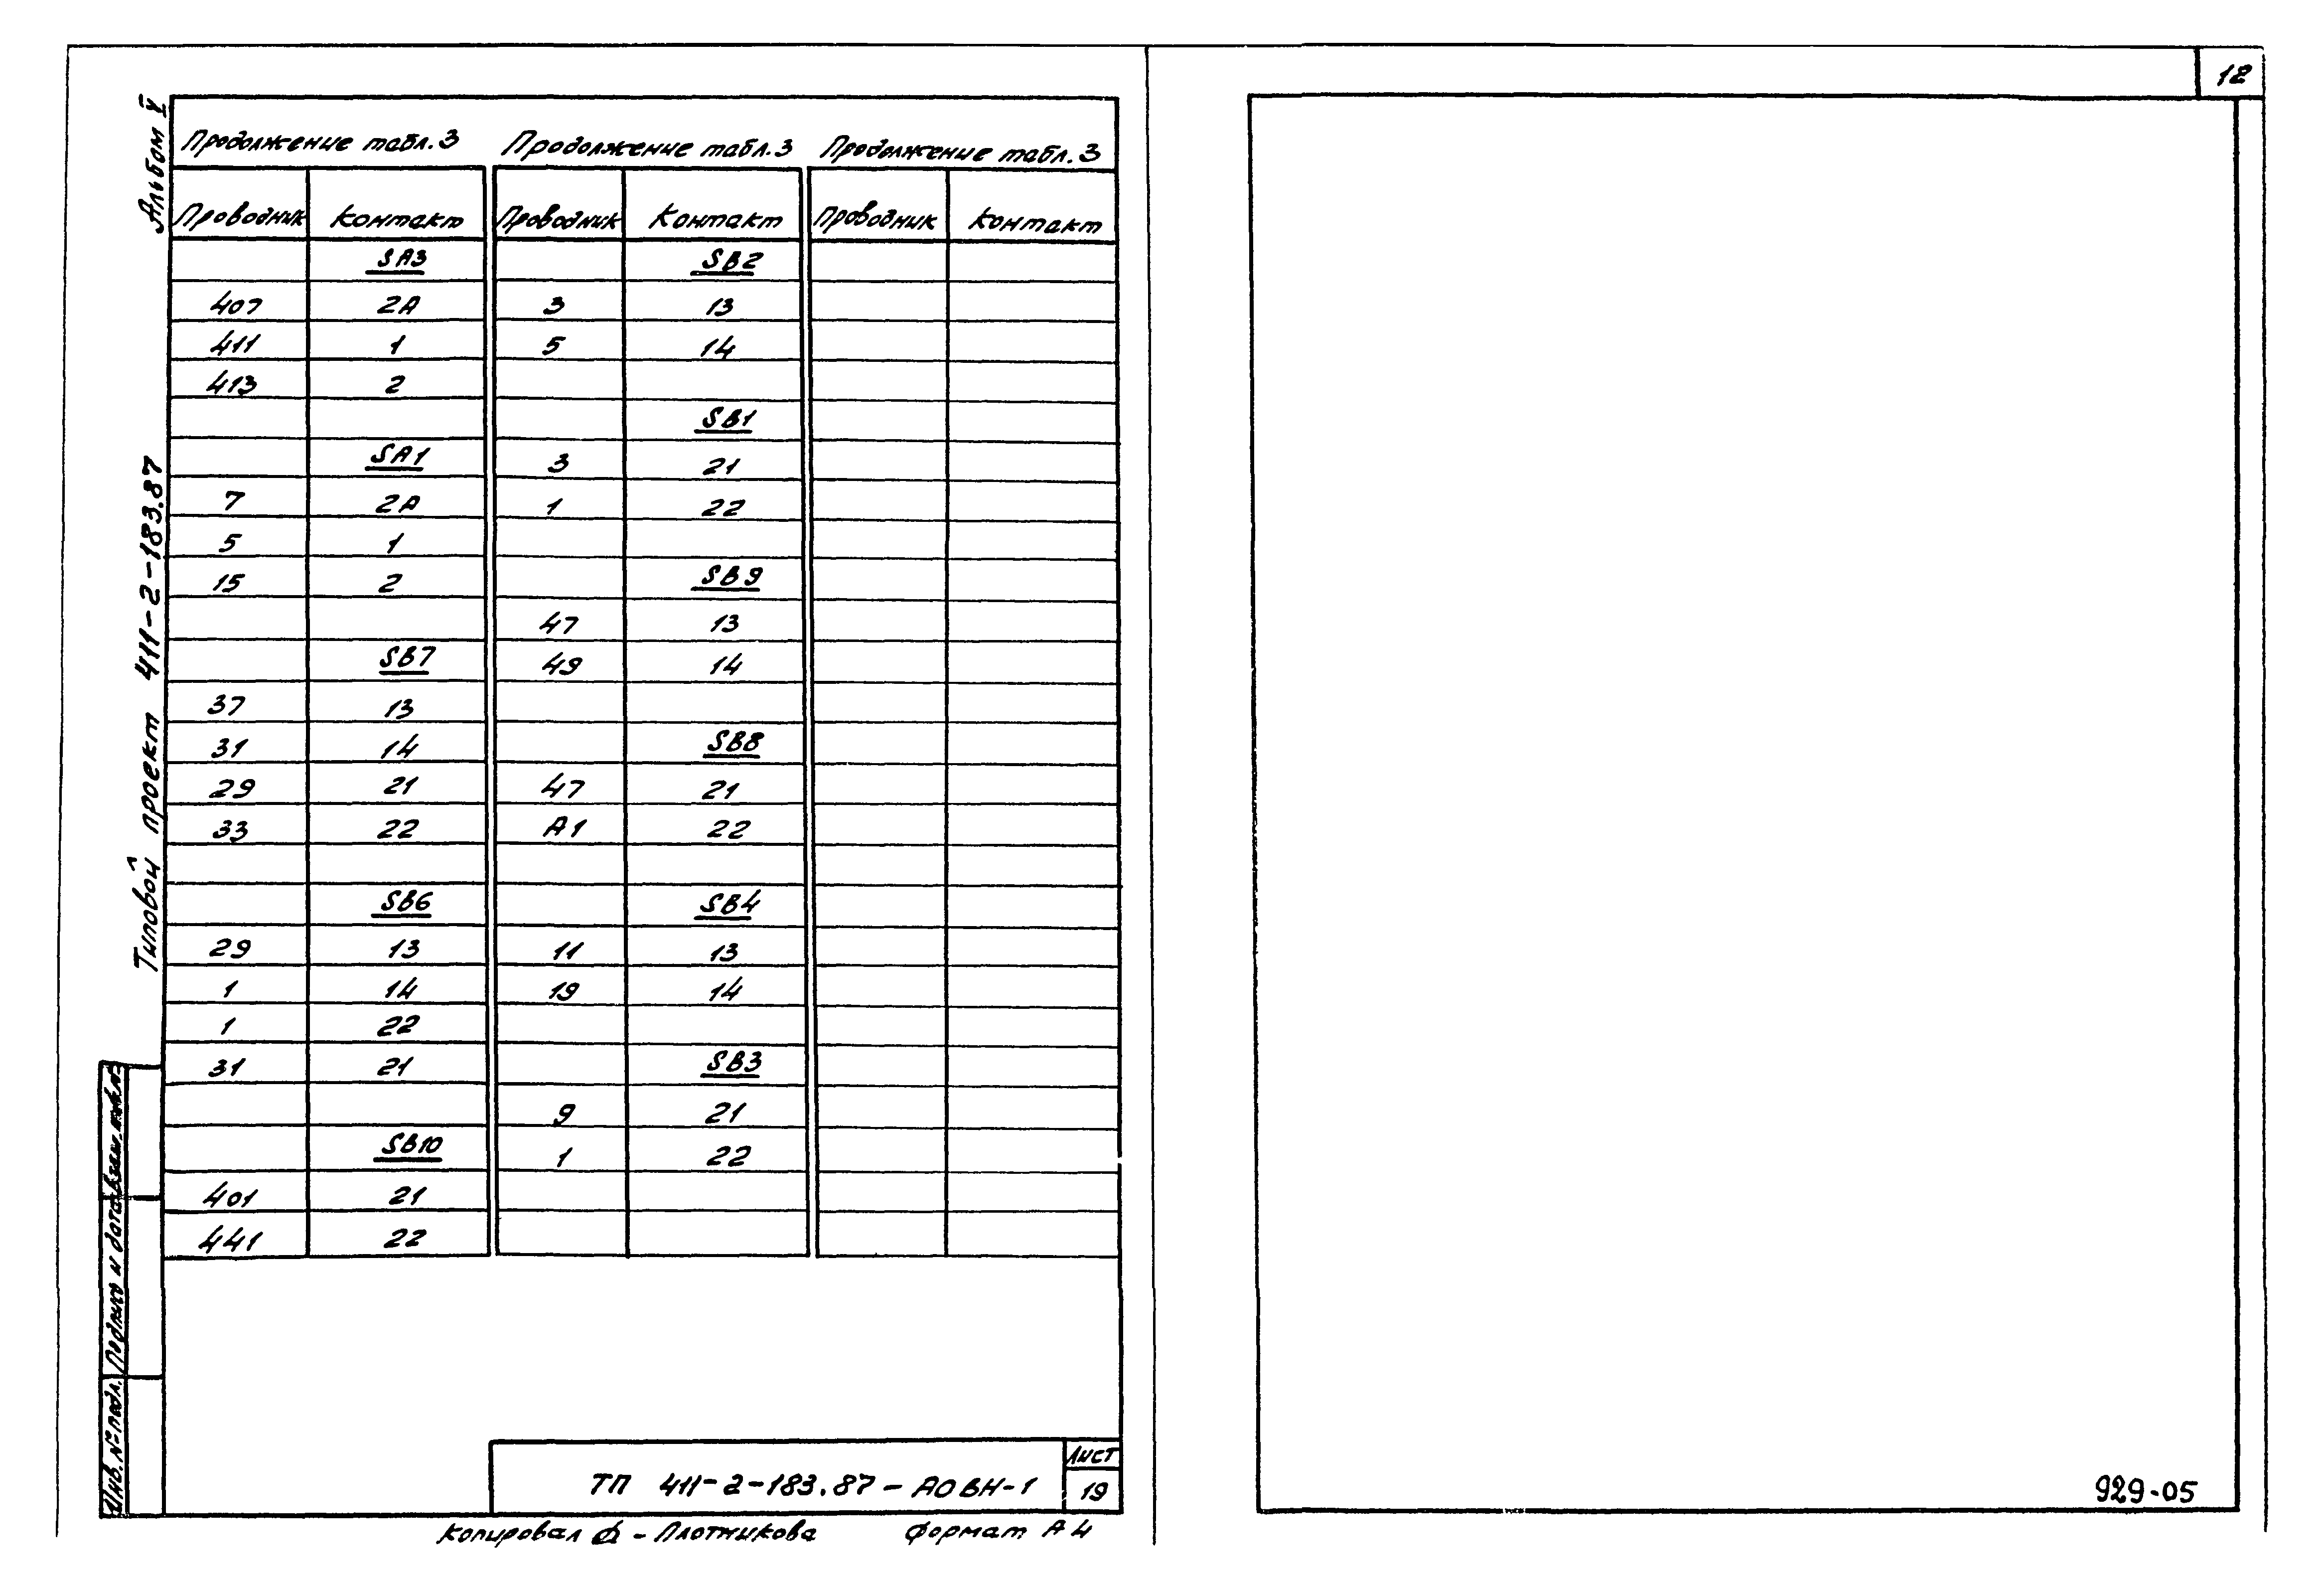 12
Альбом V
Типовой проект 411-2-183.87
Продолжение табл.3 Продолжение табл.3 Продолжение табл.3
Проводник Контакт Проводник Контакт Проводник Контакт
SA3 SB2
407 2А 3 13
411 1 5 14
413 2
SB1
SA1 3 21
7 2А 1 22
5 1
15 2 SB9
47 13
SB7 49 14
37 13
31 14 SB8
29 21 47 21
33 22 А1 22
SB6 SB4
29 13 11 13
1 14 19 14
1 22
31 21 SB3
9 21
SB10 1 22
401 21
441 22
Инв.№подл. Подпись и дата Взам.инв.№
ТП 411-2-183.87-АОВН-1
Лист
19
Копировал Ф - Плотникова Формат А4
929-05